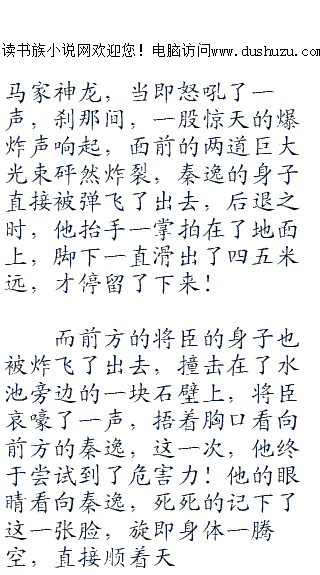 读书族小说网欢迎您！电脑访问www.dushuzu.com
马家神龙，当即怒吼了一
声，刹那间，一股惊天的爆
炸声响起，面前的两道巨大
光束砰然炸裂，秦逸的身子
直接被弹飞了出去，后退之
时，他抬手一掌拍在了地面
上，脚下一直滑出了四五米
远，才停留了下来！
而前方的将臣的身子也
被炸飞了出去，撞击在了水
池旁边的一块石壁上，将臣
哀嚎了一声，捂着胸口看向
前方的秦逸，这一次，他终
于尝试到了危害力！他的眼
睛看向秦逸，死死的记下了
这一张脸，旋即身体一腾
空，直接顺着天